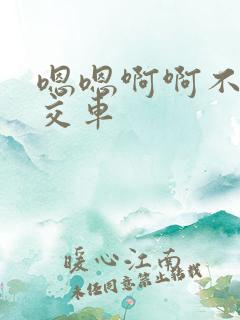 嗯嗯啊啊不
交车
暖心江南
未经同意禁止转载